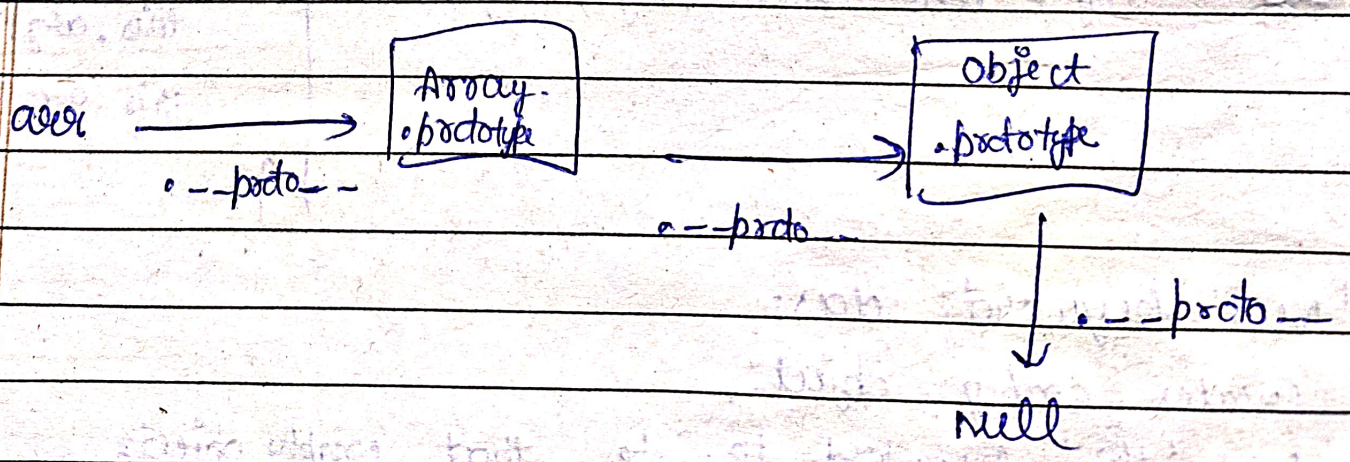 arr
Array.
.prototype
.__proto__
Object
.prototype
.__proto__
.__proto__
Null